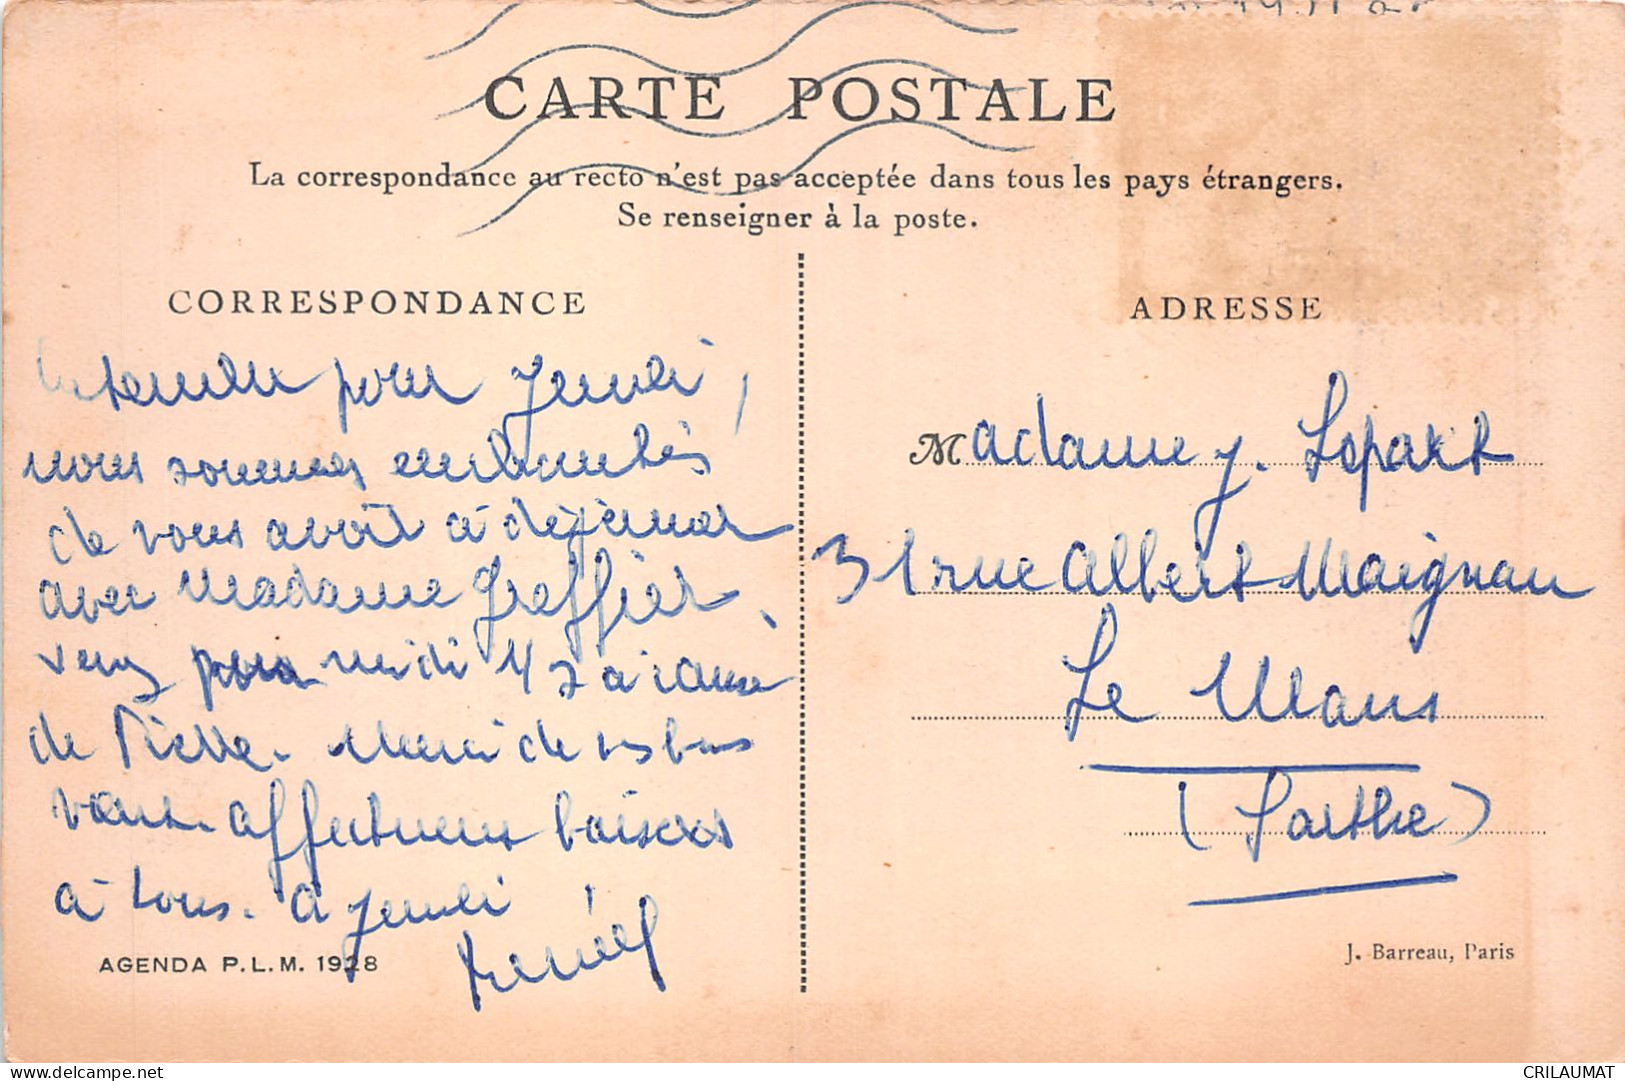 CARTE POSTALE
La correspondance au recto n'est pas acceptée dans tous les pays étrangers.
Se renseigner à la poste.
CORRESPONDANCE
pour Jeudi,
nous sommes
de vous avoir à déjeuner
avec Madame Greffier.
venez pour midi 1/2 à cause
de Pierre. Merci de vos bons
vœux. affectueux baisers
à tous. à Jeudi
AGENDA P.L.M. 1928
ADRESSE
Madame J.
31 rue Albert Maignan
Le Mans
(Sarthe)
J. Barreau, Paris
delcampe.net
CRILAUMAT